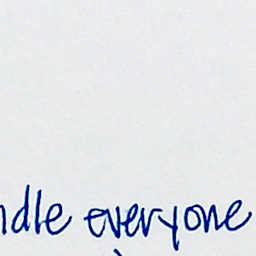 ndle everyone